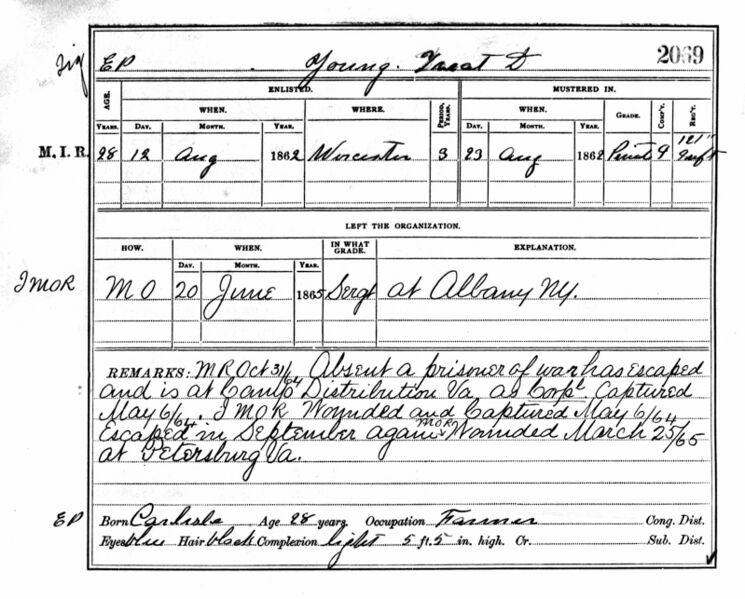 EP Young. D 2069
AGE. ENLISTED. MUSTERED IN.
WHEN. WHERE. PERIOD, YEARS. WHEN. GRADE. COMP'Y. REG'T.
YEARS. DAY. MONTH. YEAR. DAY. MONTH. YEAR.
M. I. R. 28 12 Aug 1862 Worcester 3 23 Aug 1862 121"
LEFT THE ORGANIZATION.
HOW. WHEN. IN WHAT GRADE. EXPLANATION.
DAY. MONTH. YEAR.
MO 20 June 1865 Sergt at Albany NY.
REMARKS: MR Oct 31/64 Absent a prisoner of war has escaped
and is at Camp Distribution Va as Corpl. Captured
May 6/64. Wounded and Captured May 6/64
Escaped in September again MOR Wounded March 25/65
at Petersburg Va.
EP Born Carlisle Age 28 years. Occupation Farmer Cong. Dist.
Eyes blue Hair black Complexion light 5 ft. 5 in. high. Cr. Sub. Dist.